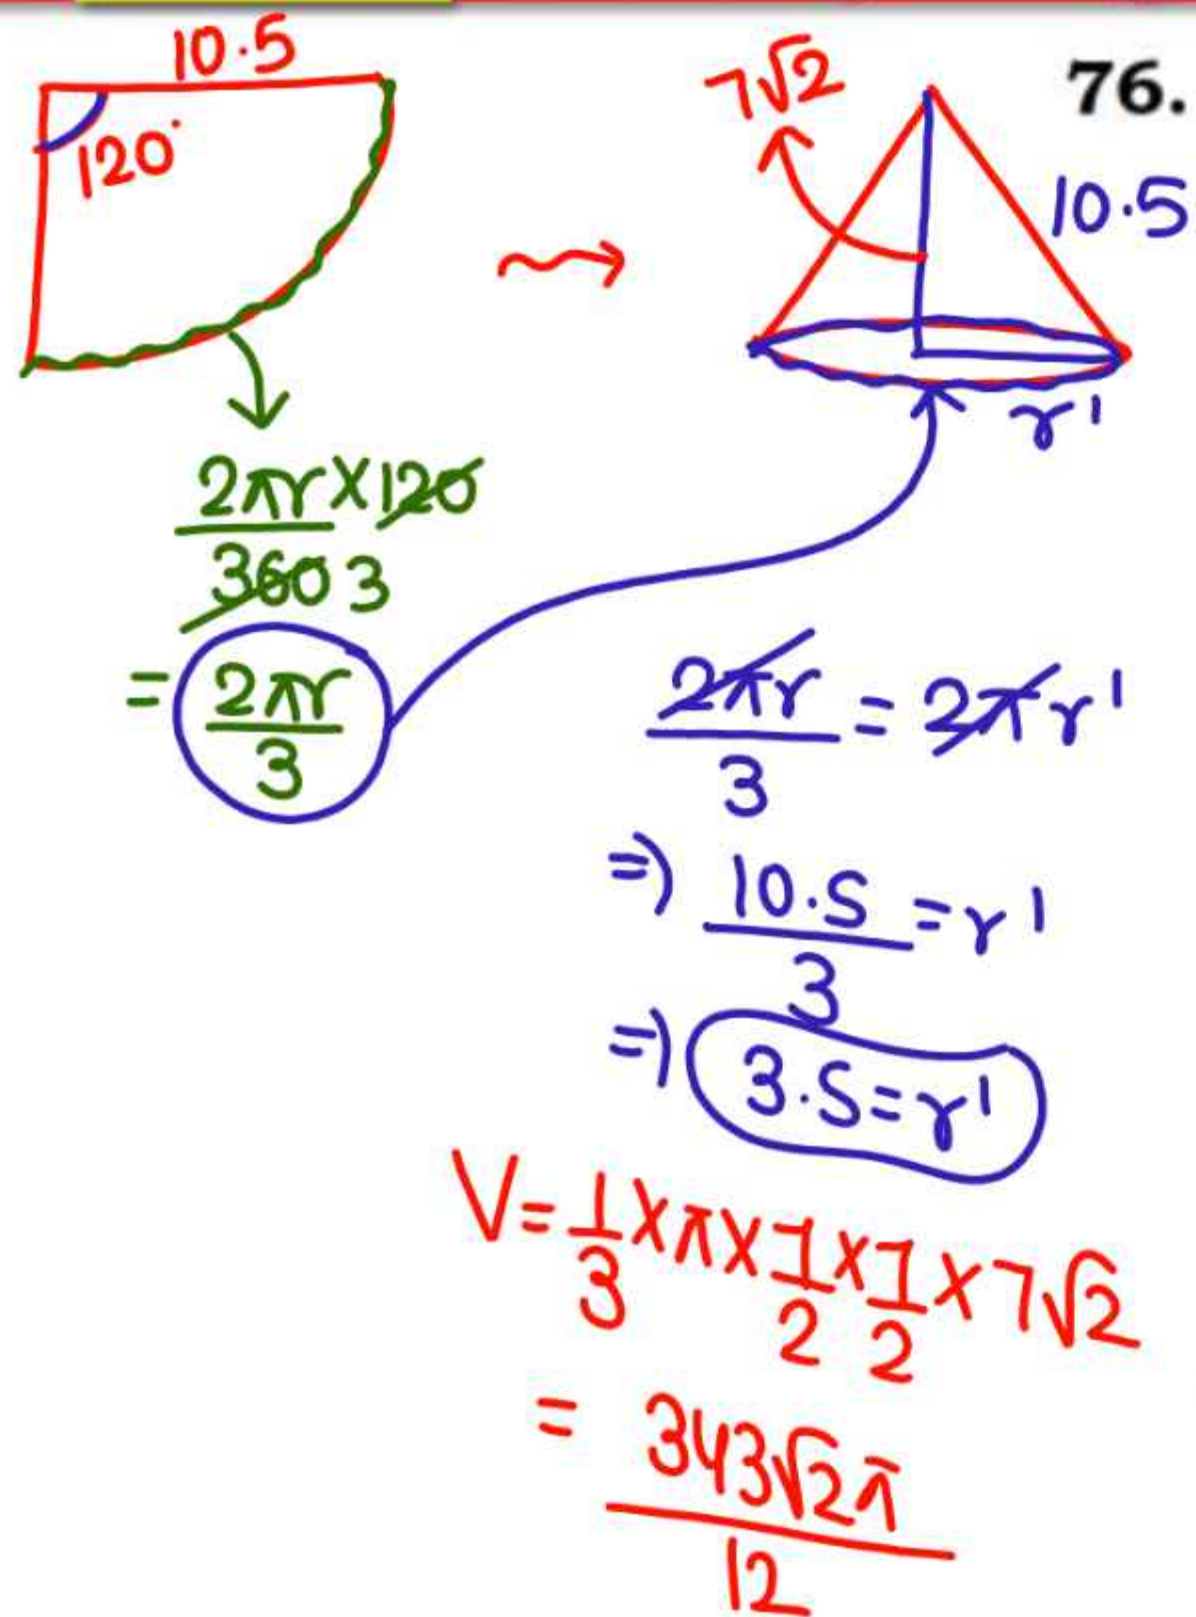 10.5
120°
7√2
76.
10.5
r'
2πr×120
360 3
= 2πr
3
2πr = 2πr'
3
=) 10.5 = r'
3
=) 3.5 = r'
V = 1/3 × π × 7/2 × 7/2 × 7√2
= 343√2π
12